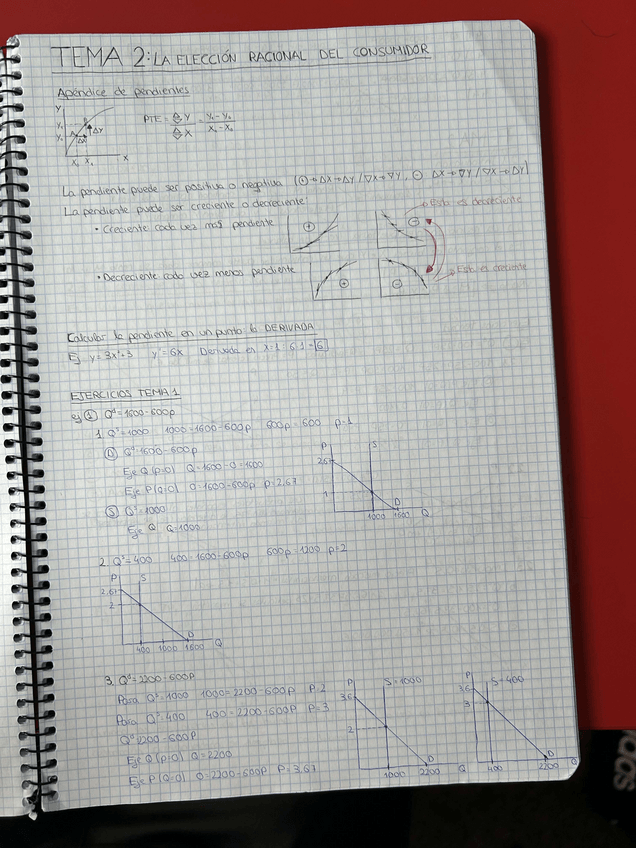 TEMA 2: LA ELECCIÓN RACIONAL DEL CONSUMIDOR
Apéndice de pendientes
Y
Y₁
Y₀
ΔY
ΔX
X₀ X₁ X
PTE = ΔY / ΔX = Y₁ - Y₀ / X₁ - X₀
La pendiente puede ser positiva o negativa (⊕→ΔX→ΔY / ∇X→∇Y, ⊖ ΔX→∇Y / ∇X→ΔY)
La pendiente puede ser creciente o decreciente
Esto es decreciente
• Creciente cada vez mas pendiente
+
-
• Decreciente cada vez menos pendiente
+
-
Esto es creciente
Calcular la pendiente en un punto la DERIVADA
Ej y=3x²+3 y'=6x Derivada en x=1 6·1=6
EJERCICIOS TEMA 1
ej ① Qᵈ=1600-600p
1. Qˢ=1000 1000=1600-600p 600p=600 p=1
Ⓓ Qᵈ=1600-600p
Eje Q (p=0) Q=1600-0=1600
Eje P (Q=0) 0=1600-600p p=2,67
Ⓢ Qˢ=1000
Eje Q Q=1000
P
S
2,67
1
D
1000 1600 Q
2. Qˢ=400 400=1600-600p 600p=1200 p=2
P
S
2,67
2
D
400 1000 1600 Q
3. Qᵈ=2200-600p
Para Qˢ=1000 1000=2200-600p P=2
Para Qˢ=400 400=2200-600p P=3
Qᵈ=2200-600p
Eje Q (p=0) Q=2200
Eje P (Q=0) 0=2200-600p P=3,67
P
S=1000
3,6
2
D
1000 2200 Q
P
S=400
3,6
3
D
400 2200 Q
adidas